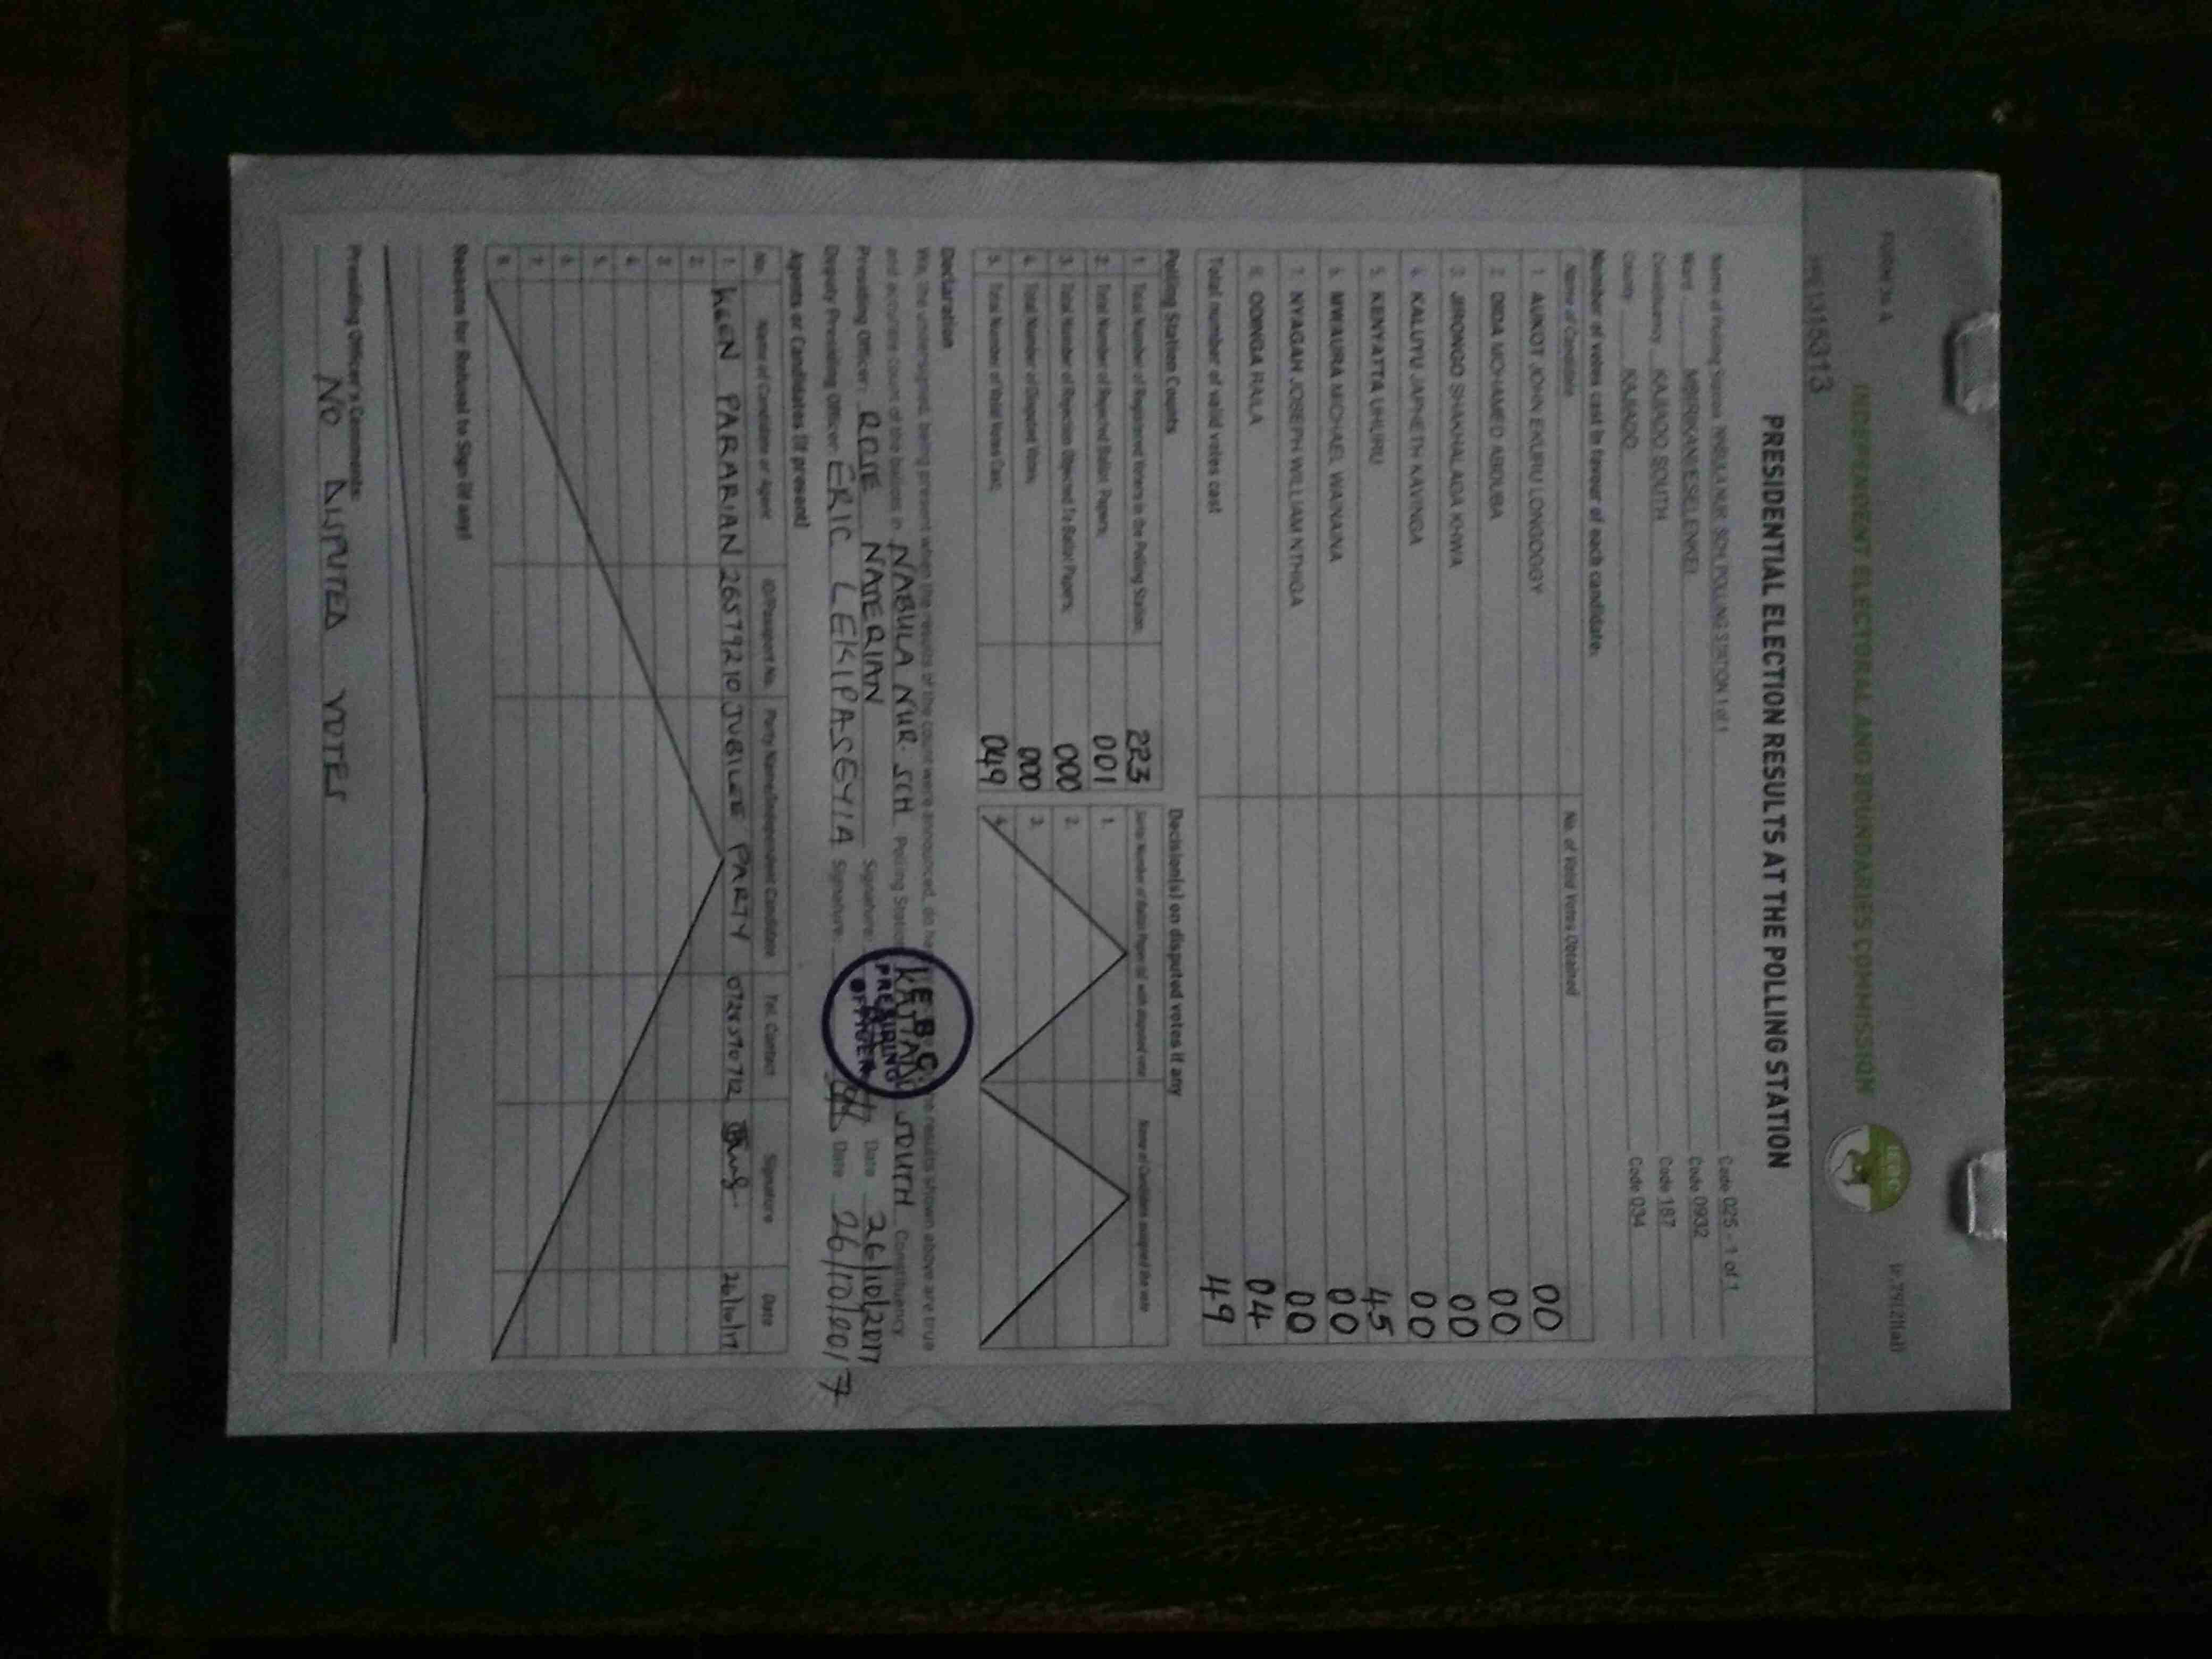 FORM 34 A
INDEPENDENT ELECTORAL AND BOUNDARIES COMMISSION
IEBC
PRESIDENTIAL ELECTION RESULTS AT THE POLLING STATION
Name of Polling Station NUR. SCH POLLING STATION 1 of 1 Code 025 - 1 of 1
Ward Code 0932
Constituency KAJIADO SOUTH Code 187
County KAJIADO Code 034
Number of votes cast in favour of each candidate:
Name of Candidate No. of Valid Votes Obtained
1. AUKOT JOHN EKURU LONGOGGY 00
2. DIDA MOHAMED ABDUBA 00
3. JIRONGO SHAKHALAGA KHWA 00
4. KALUYU JAPHETH KAVINGA 00
5. KENYATTA UHURU 45
6. MWAURA MICHAEL WAINAINA 00
7. NYAGAH JOSEPH WILLIAM NTHIGA 00
8. ODINGA RAILA 04
Total number of valid votes cast 49
Polling Station Counts
1. Total Number of Registered Voters in the Polling Station: 223
2. Total Number of Rejected Ballot Papers: 001
3. Total Number of Rejection Objected To Ballot Papers: 000
4. Total Number of Disputed Votes: 000
5. Total Number of Valid Votes Cast: 049
Decision(s) on disputed votes if any
Serial Number of Ballot Paper(s) with disputed vote Name of Candidate assigned the vote
1.
2.
3.
4.
Declaration
We, the undersigned, being present when the results of the count were announced, do results shown above are true
and accurate count of the ballots in NABULA NUR. SCH Polling Station SOUTH Constituency
Presiding Officer: Signature: Date 26/10/2017
Deputy Presiding Officer: ERIC Signature: Date 26/10/2017
PRESIDING
OFFICER
Agents or Candidates (if present)
No. Name of Candidate or Agent ID/Passport No. Party Name/Independent Candidate Tel. Contact Signature Date
1. PARARIAN 26579210 JUBILEE PARTY 0728570712 26/10/17
2.
3.
4.
5.
6.
7.
8.
Reasons for Refusal to Sign (if any)
Presiding Officer's Comments:
NO DISPUTED VOTES